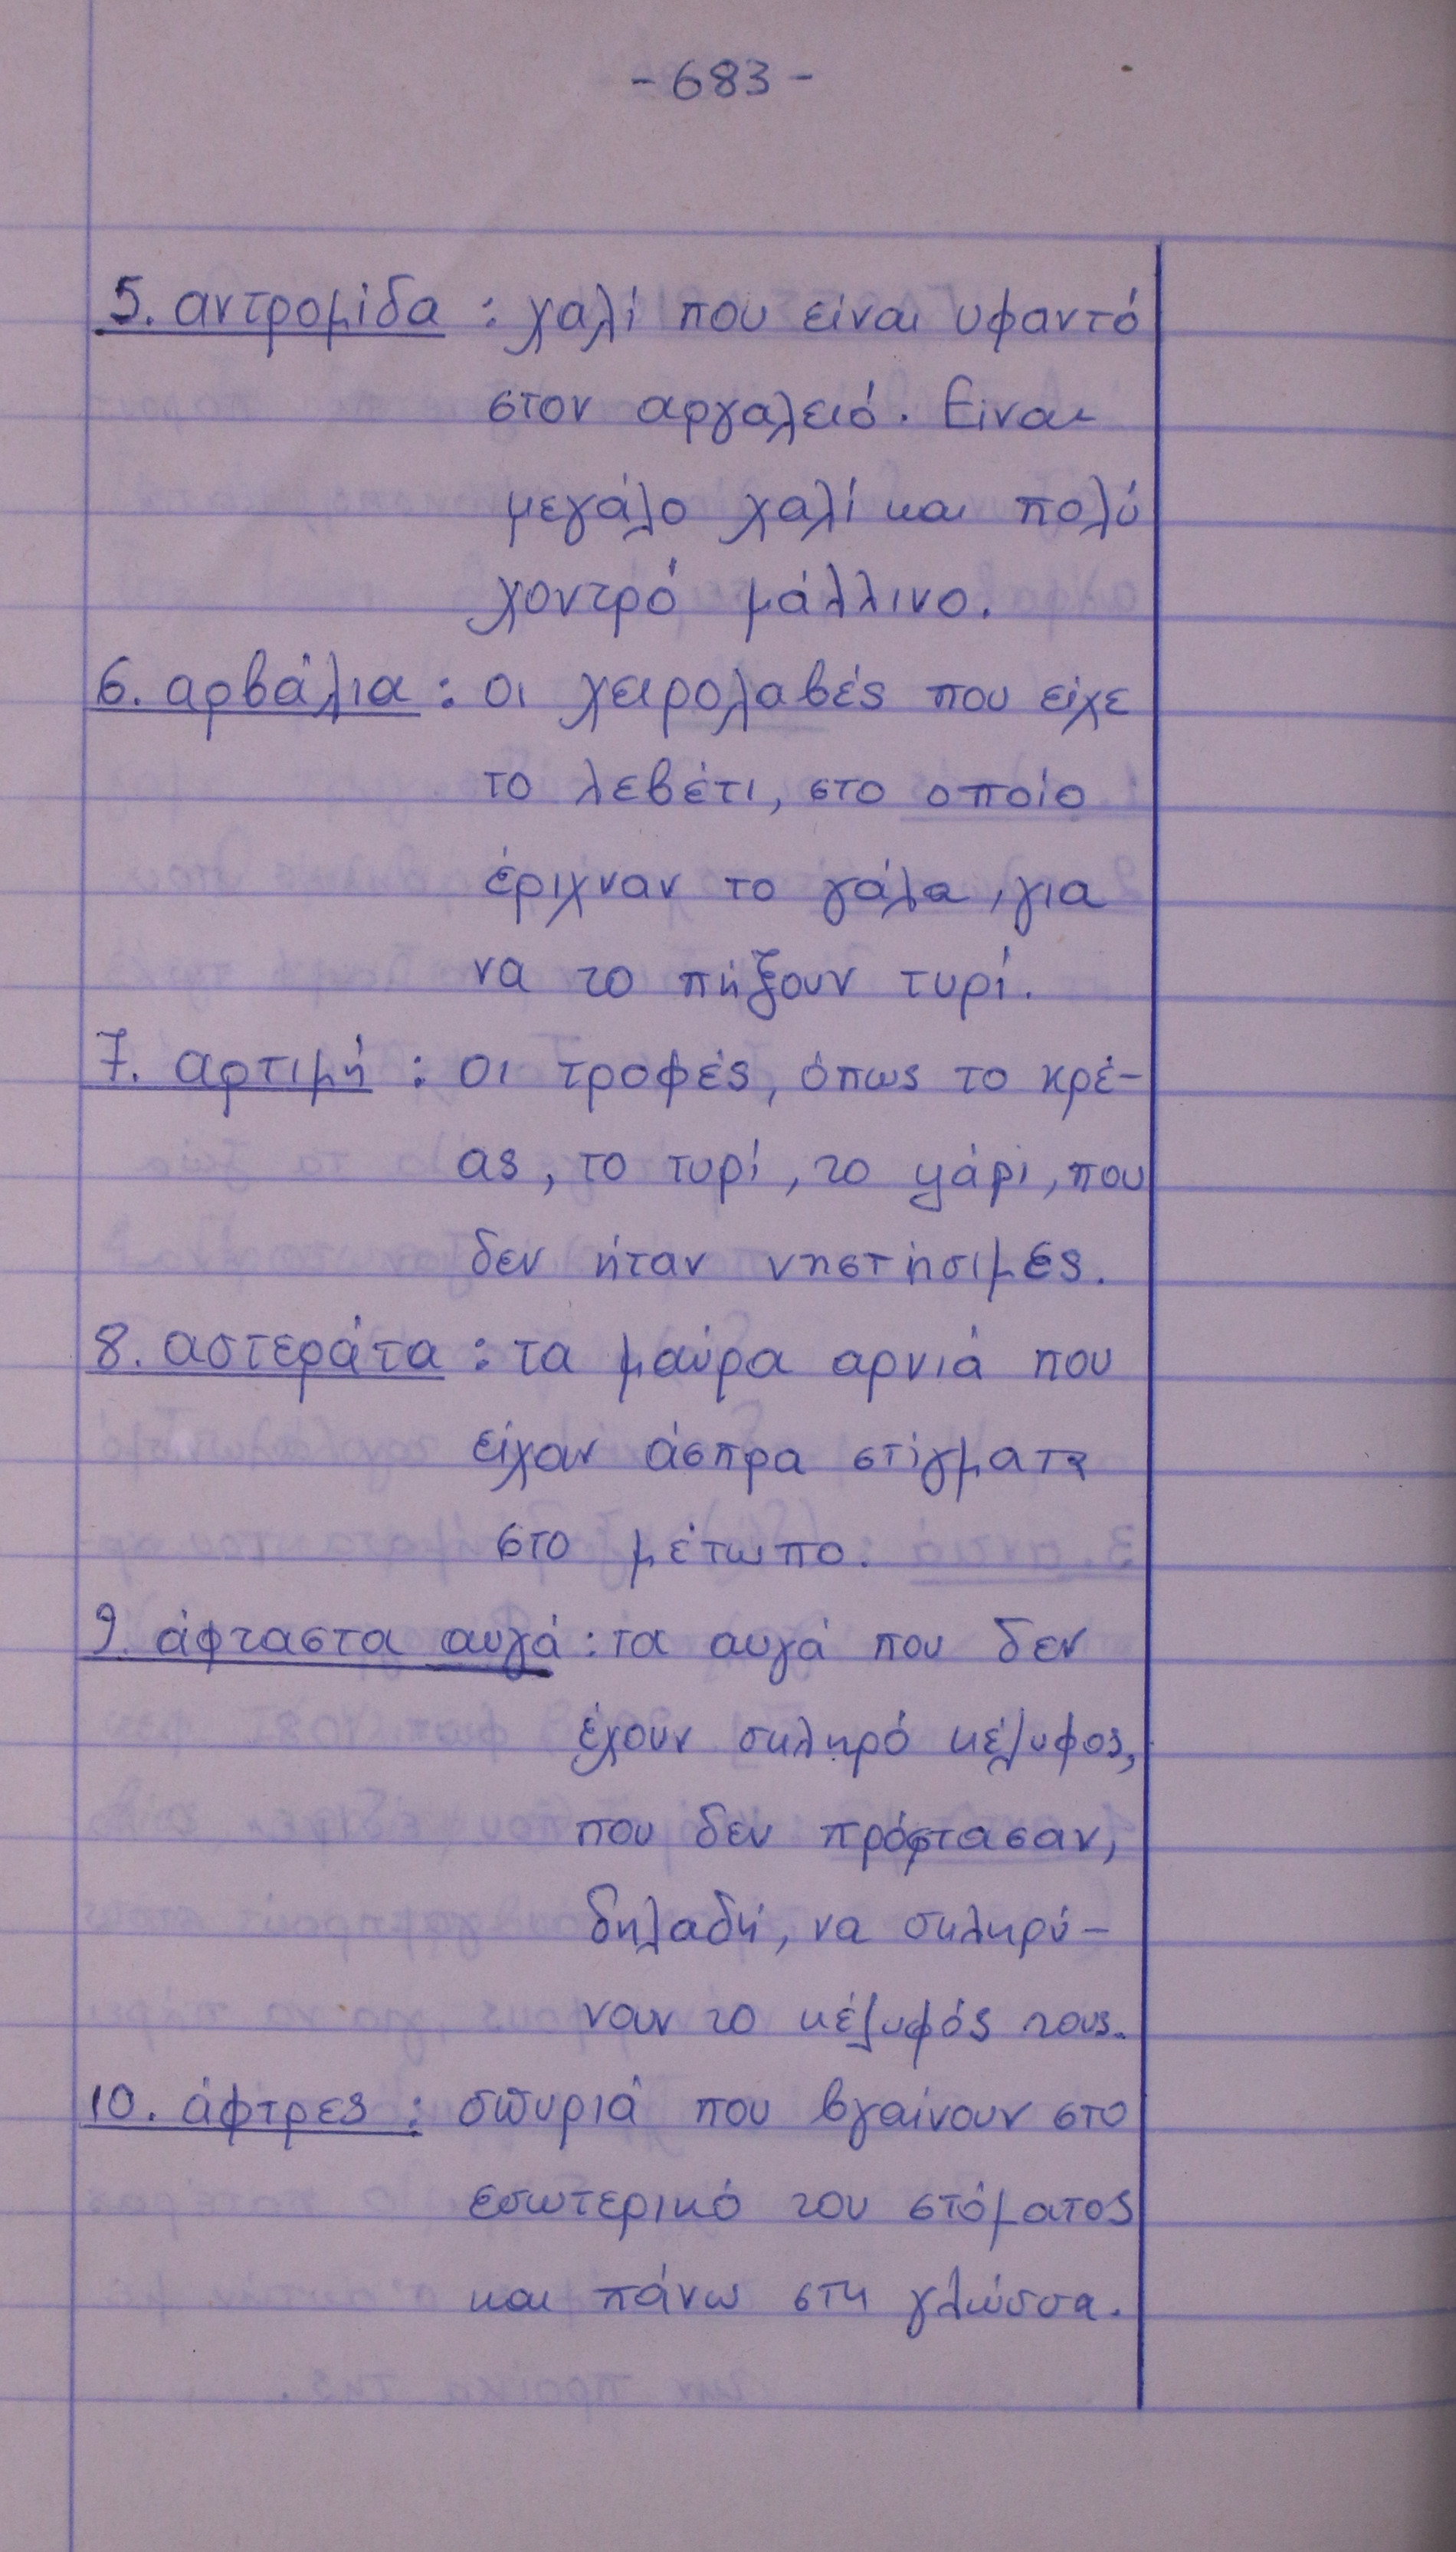 - 683 -
5. αντρομίδα : χαλί που είναι υφαντό
στον αργαλειό. Είναι
μεγάλο χαλί και πολύ
χοντρό μάλλινο.
6. αρβάλια : οι χειρολαβές που είχε
το λεβέτι, στο οποίο
έριχναν το γάλα, για
να το πήξουν τυρί.
7. αρτιμή : οι τροφές, όπως το κρέ-
ας, το τυρί, το ψάρι, που
δεν ήταν νηστήσιμες.
8. αστεράτα : τα μαύρα αρνιά που
είχαν άσπρα στίγματα
στο μέτωπο.
9. άφταστα αυγά : τα αυγά που δεν
έχουν σκληρό κέλυφος,
που δεν πρόφτασαν,
δηλαδή, να σκληρύ-
νουν το κέλυφός τους.
10. άφτρες : σπυριά που βγαίνουν στο
εσωτερικό του στόματος
και πάνω στη γλώσσα.